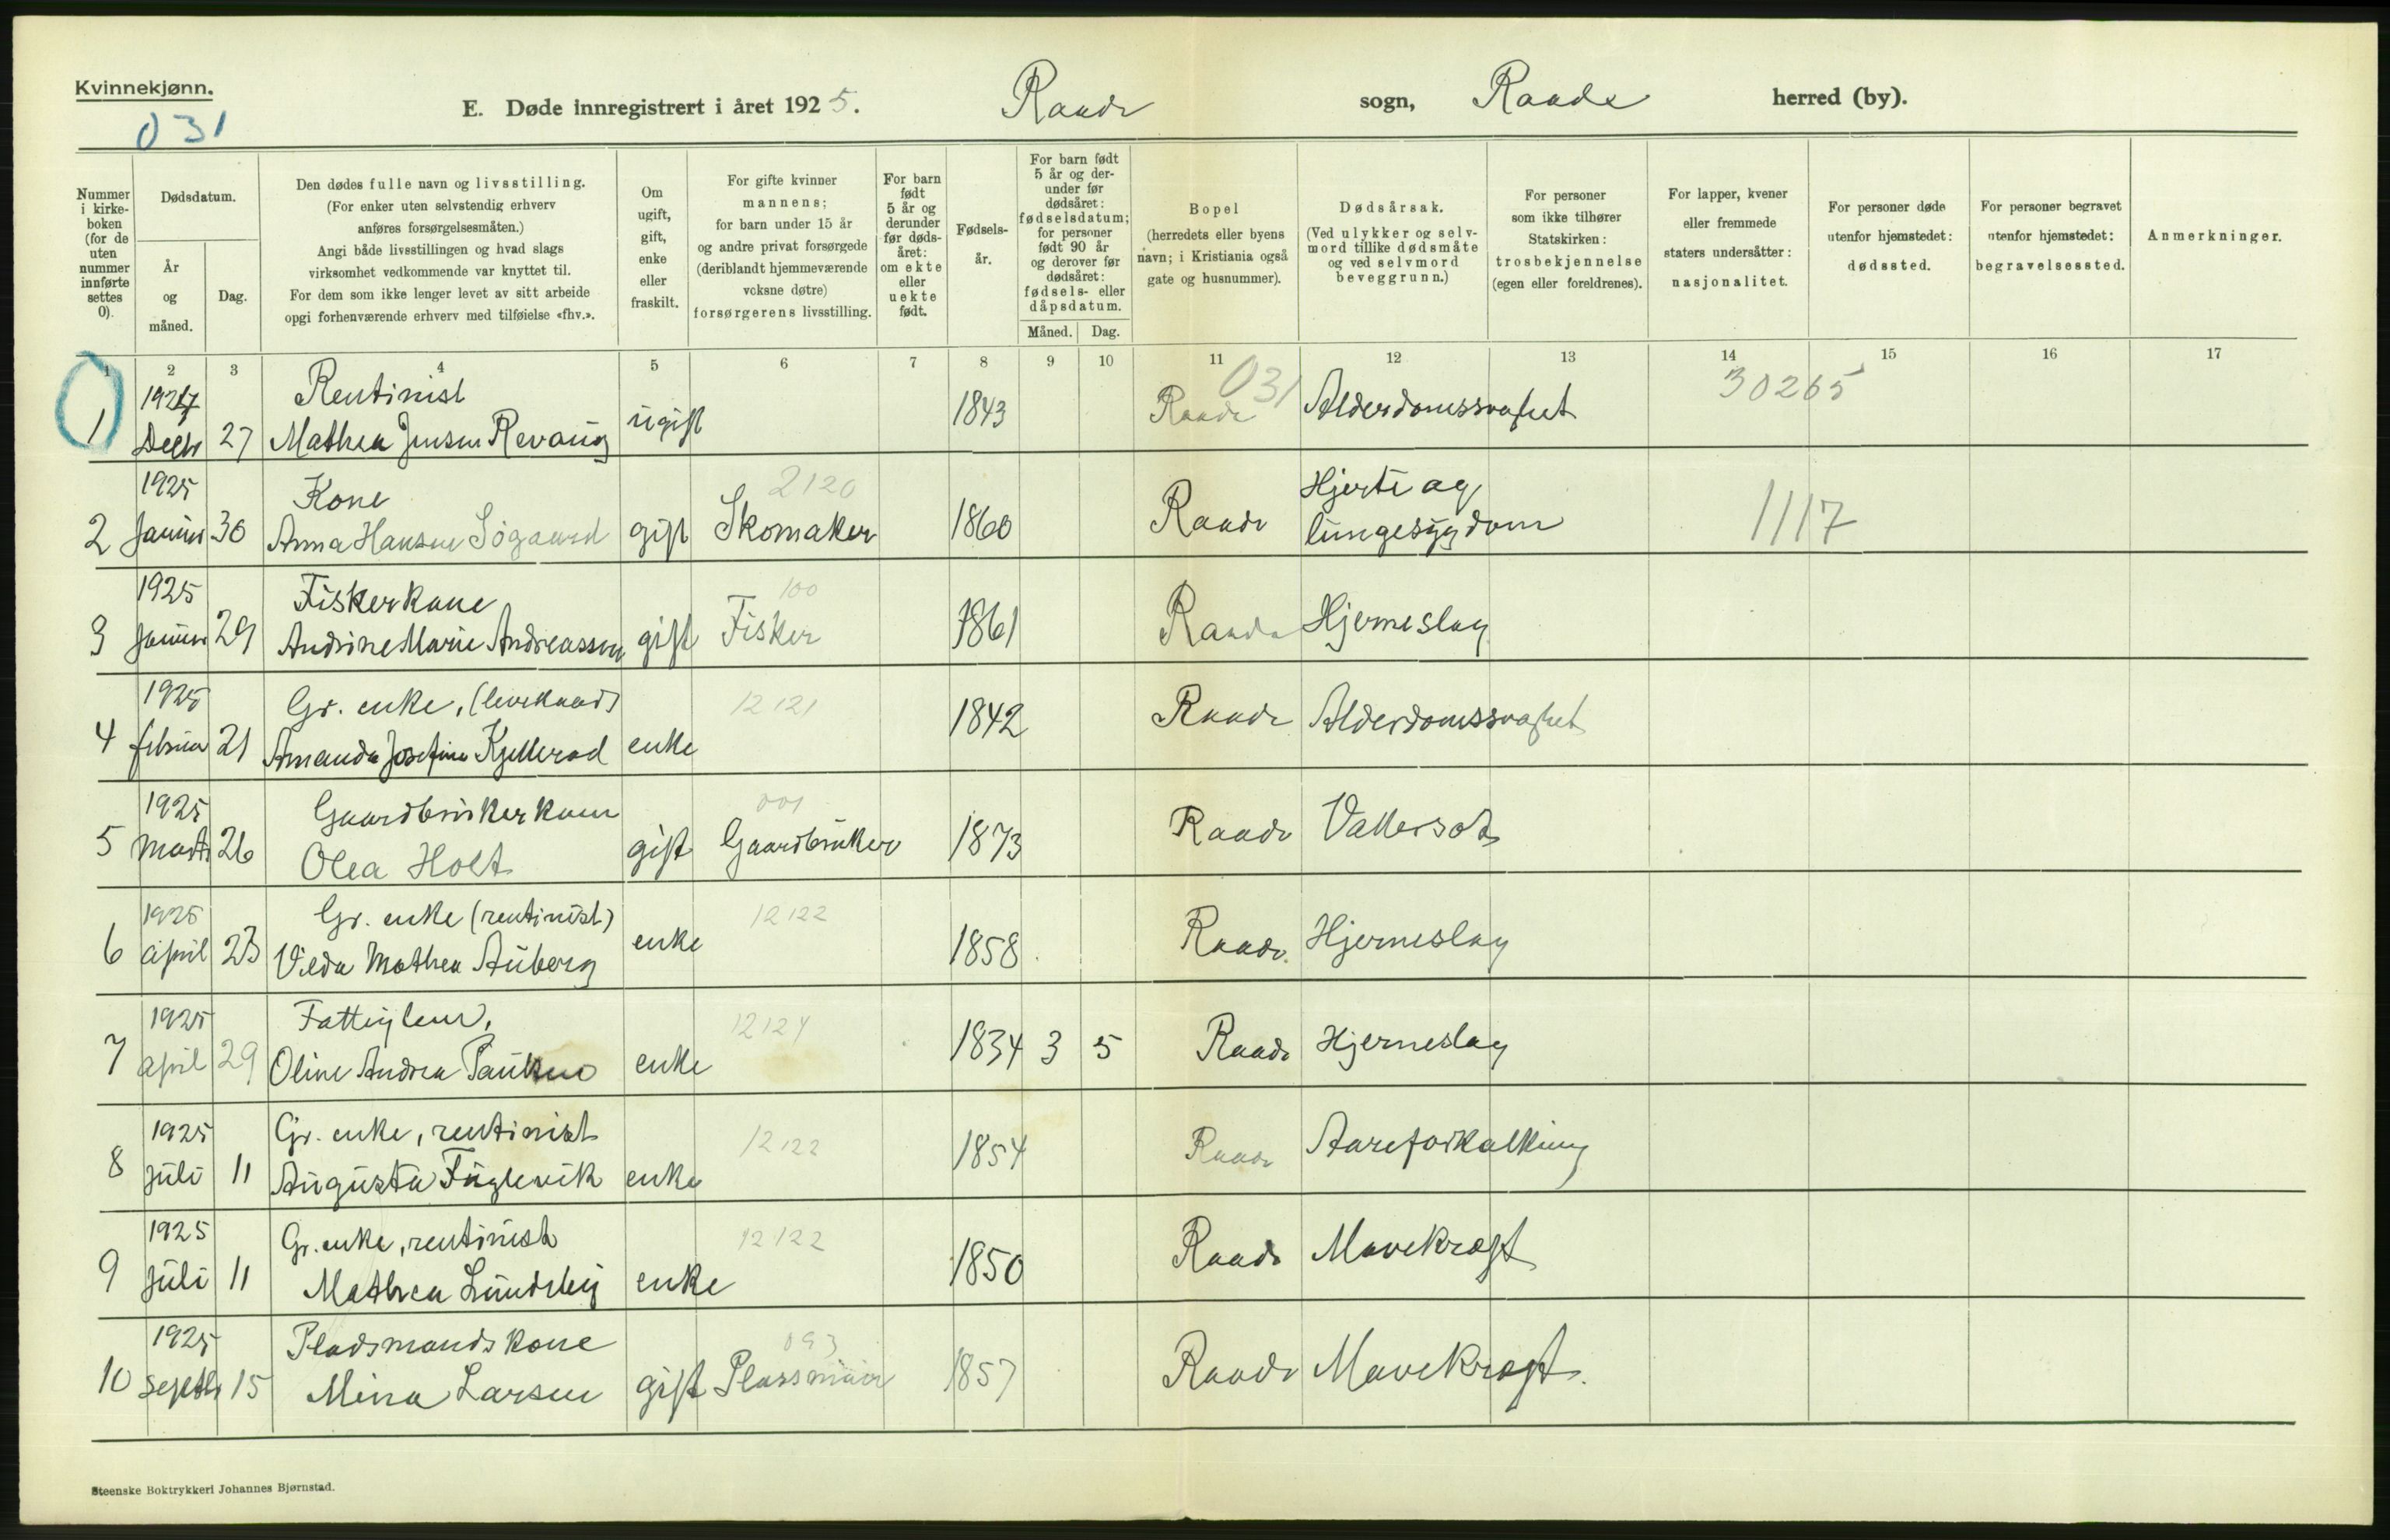 Kvinnekjønn.
031
E. Døde innregistrert i året 1925. Raade sogn, Raade herred (by).
Nummer i kirke-boken (for de uten nummer innførte settes 0).
Dødsdatum.
År og måned.
Dag.
Den dødes fulle navn og livsstilling.
(For enker uten selvstendig erhverv
anføres forsørgelsesmåten.)
Angi både livsstillingen og hvad slags
virksomhet vedkommende var knyttet til.
For dem som ikke lenger levet av sitt arbeide
opgi forhenværende erhverv med tilføielse «fhv.».
Om
ugift,
gift,
enke
eller
fraskilt.
For gifte kvinner
mannens;
for barn under 15 år
og andre privat forsørgede
(deriblandt hjemmeværende
voksne døtre)
forsørgerens livsstilling.
For barn
født
5 år og
derunder
før døds-
året:
om ekte
eller
uekte
født.
Fødsels-
år.
For barn født
5 år og der-
under før
dødsåret:
fødselsdatum;
for personer
født 90 år
og derover før
dødsåret:
fødsels- eller
dåpsdatum.
Måned. Dag.
Bopel
(herredets eller byens
navn; i Kristiania også
gate og husnummer).
Dødsårsak.
(Ved ulykker og selv-
mord tillike dødsmåte
og ved selvmord
beveggrunn.)
For personer
som ikke tilhører
Statskirken:
trosbekjennelse
(egen eller foreldrenes).
For lapper, kvener
eller fremmede
staters undersåtter:
nasjonalitet.
For personer døde
utenfor hjemstedet:
dødssted.
For personer begravet
utenfor hjemstedet:
begravelsessted.
Anmerkninger.
1 2 3 4 5 6 7 8 9 10 11 12 13 14 15 16 17
1924 Rentinist 031 30265
1 Decbr 27 Mathea Jensen Revaug ugift 1843 Raade Alderdomssvakhet
1925 Kone 2120 Hjerte og
2 Januar 30 Anna Hansen Sögaard gift Skomaker 1860 Raade lungesygdom 1117
1925 Fiskerkone 100
3 Januar 29 Andrine Marie Andreassen gift Fisker 1861 Raade Hjerneslag
1925 Gr. enke, (levekaar) 12121
4 februar 21 Amanda Josefine Kjellerød enke 1842 Raade Alderdomssvakhet
1925 Gaardbrukerkone 001
5 Marts 26 Olea Holt gift Gaardbruker 1873 Raade Vattersot
1925 Gr. enke (rentinist) 12122
6 April 23 Vilda Mathea Auberg enke 1858 Raade Hjerneslag
1925 Fattiglem, 12124
7 April 29 Oline Andrea Paulsen enke 1834 3 5 Raade Hjerneslag
1925 Gr. enke, rentinist 12122
8 Juli 11 Augusta Fuglevik enke 1854 Raade Aareforkalkning
1925 Gr. enke, rentinist 12122
9 Juli 11 Mathea Lundeby enke 1850 Raade Mavekræft
1925 Pladsmandskone 093
10 Septbr 15 Mina Larsen gift Plassmann 1857 Raade Mavekræft.
Steenske Boktrykkeri Johannes Bjørnstad.